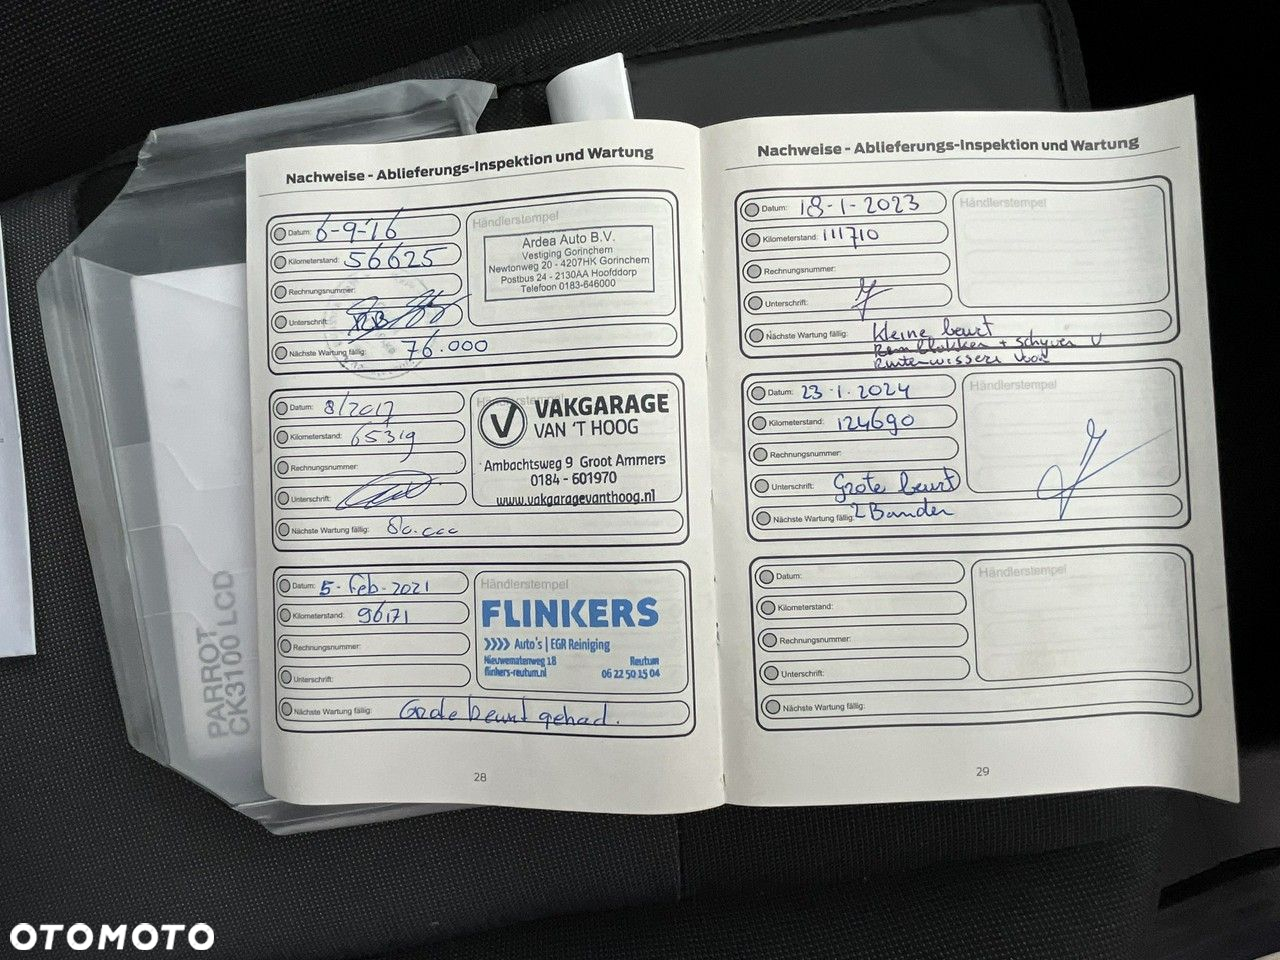 Nachweise - Ablieferungs-Inspektion und Wartung
Datum: 6-9-'16
Kilometerstand: 56625
Rechnungsnummer:
Unterschrift:
Nächste Wartung fällig: 76.000
Händlerstempel
Ardea Auto B.V.
Vestiging Gorinchem
Newtonweg 20 - 4207HK Gorinchem
Postbus 24 - 2130AA Hoofddorp
Telefoon 0183-646000
Datum: 8/2017
Kilometerstand: 65319
Rechnungsnummer:
Unterschrift:
Nächste Wartung fällig: 80.000
V VAKGARAGE
VAN 'T HOOG
Ambachtsweg 9 Groot Ammers
0184 - 601970
www.vakgaragevanthoog.nl
Datum: 5-Feb-2021
Kilometerstand: 96171
Rechnungsnummer:
Unterschrift:
Nächste Wartung fällig: Grote beurt gehad.
Händlerstempel
FLINKERS
Auto's | EGR Reiniging
Nieuwematenweg 18 Reutum
flinkers-reutum.nl 06 22 50 15 04
28
Nachweise - Ablieferungs-Inspektion und Wartung
Datum: 18-1-2023
Kilometerstand: 111710
Rechnungsnummer:
Unterschrift:
Nächste Wartung fällig: Kleine beurt
Remblokken + schyven V
Ruitenwissers Voor
Händlerstempel
Datum: 23-1-2024
Kilometerstand: 124690
Rechnungsnummer:
Unterschrift: Grote beurt
Nächste Wartung fällig: 2 Banden
Händlerstempel
Datum:
Kilometerstand:
Rechnungsnummer:
Unterschrift:
Nächste Wartung fällig:
Händlerstempel
29
PARROT
CK3100 LCD
OTOMOTO